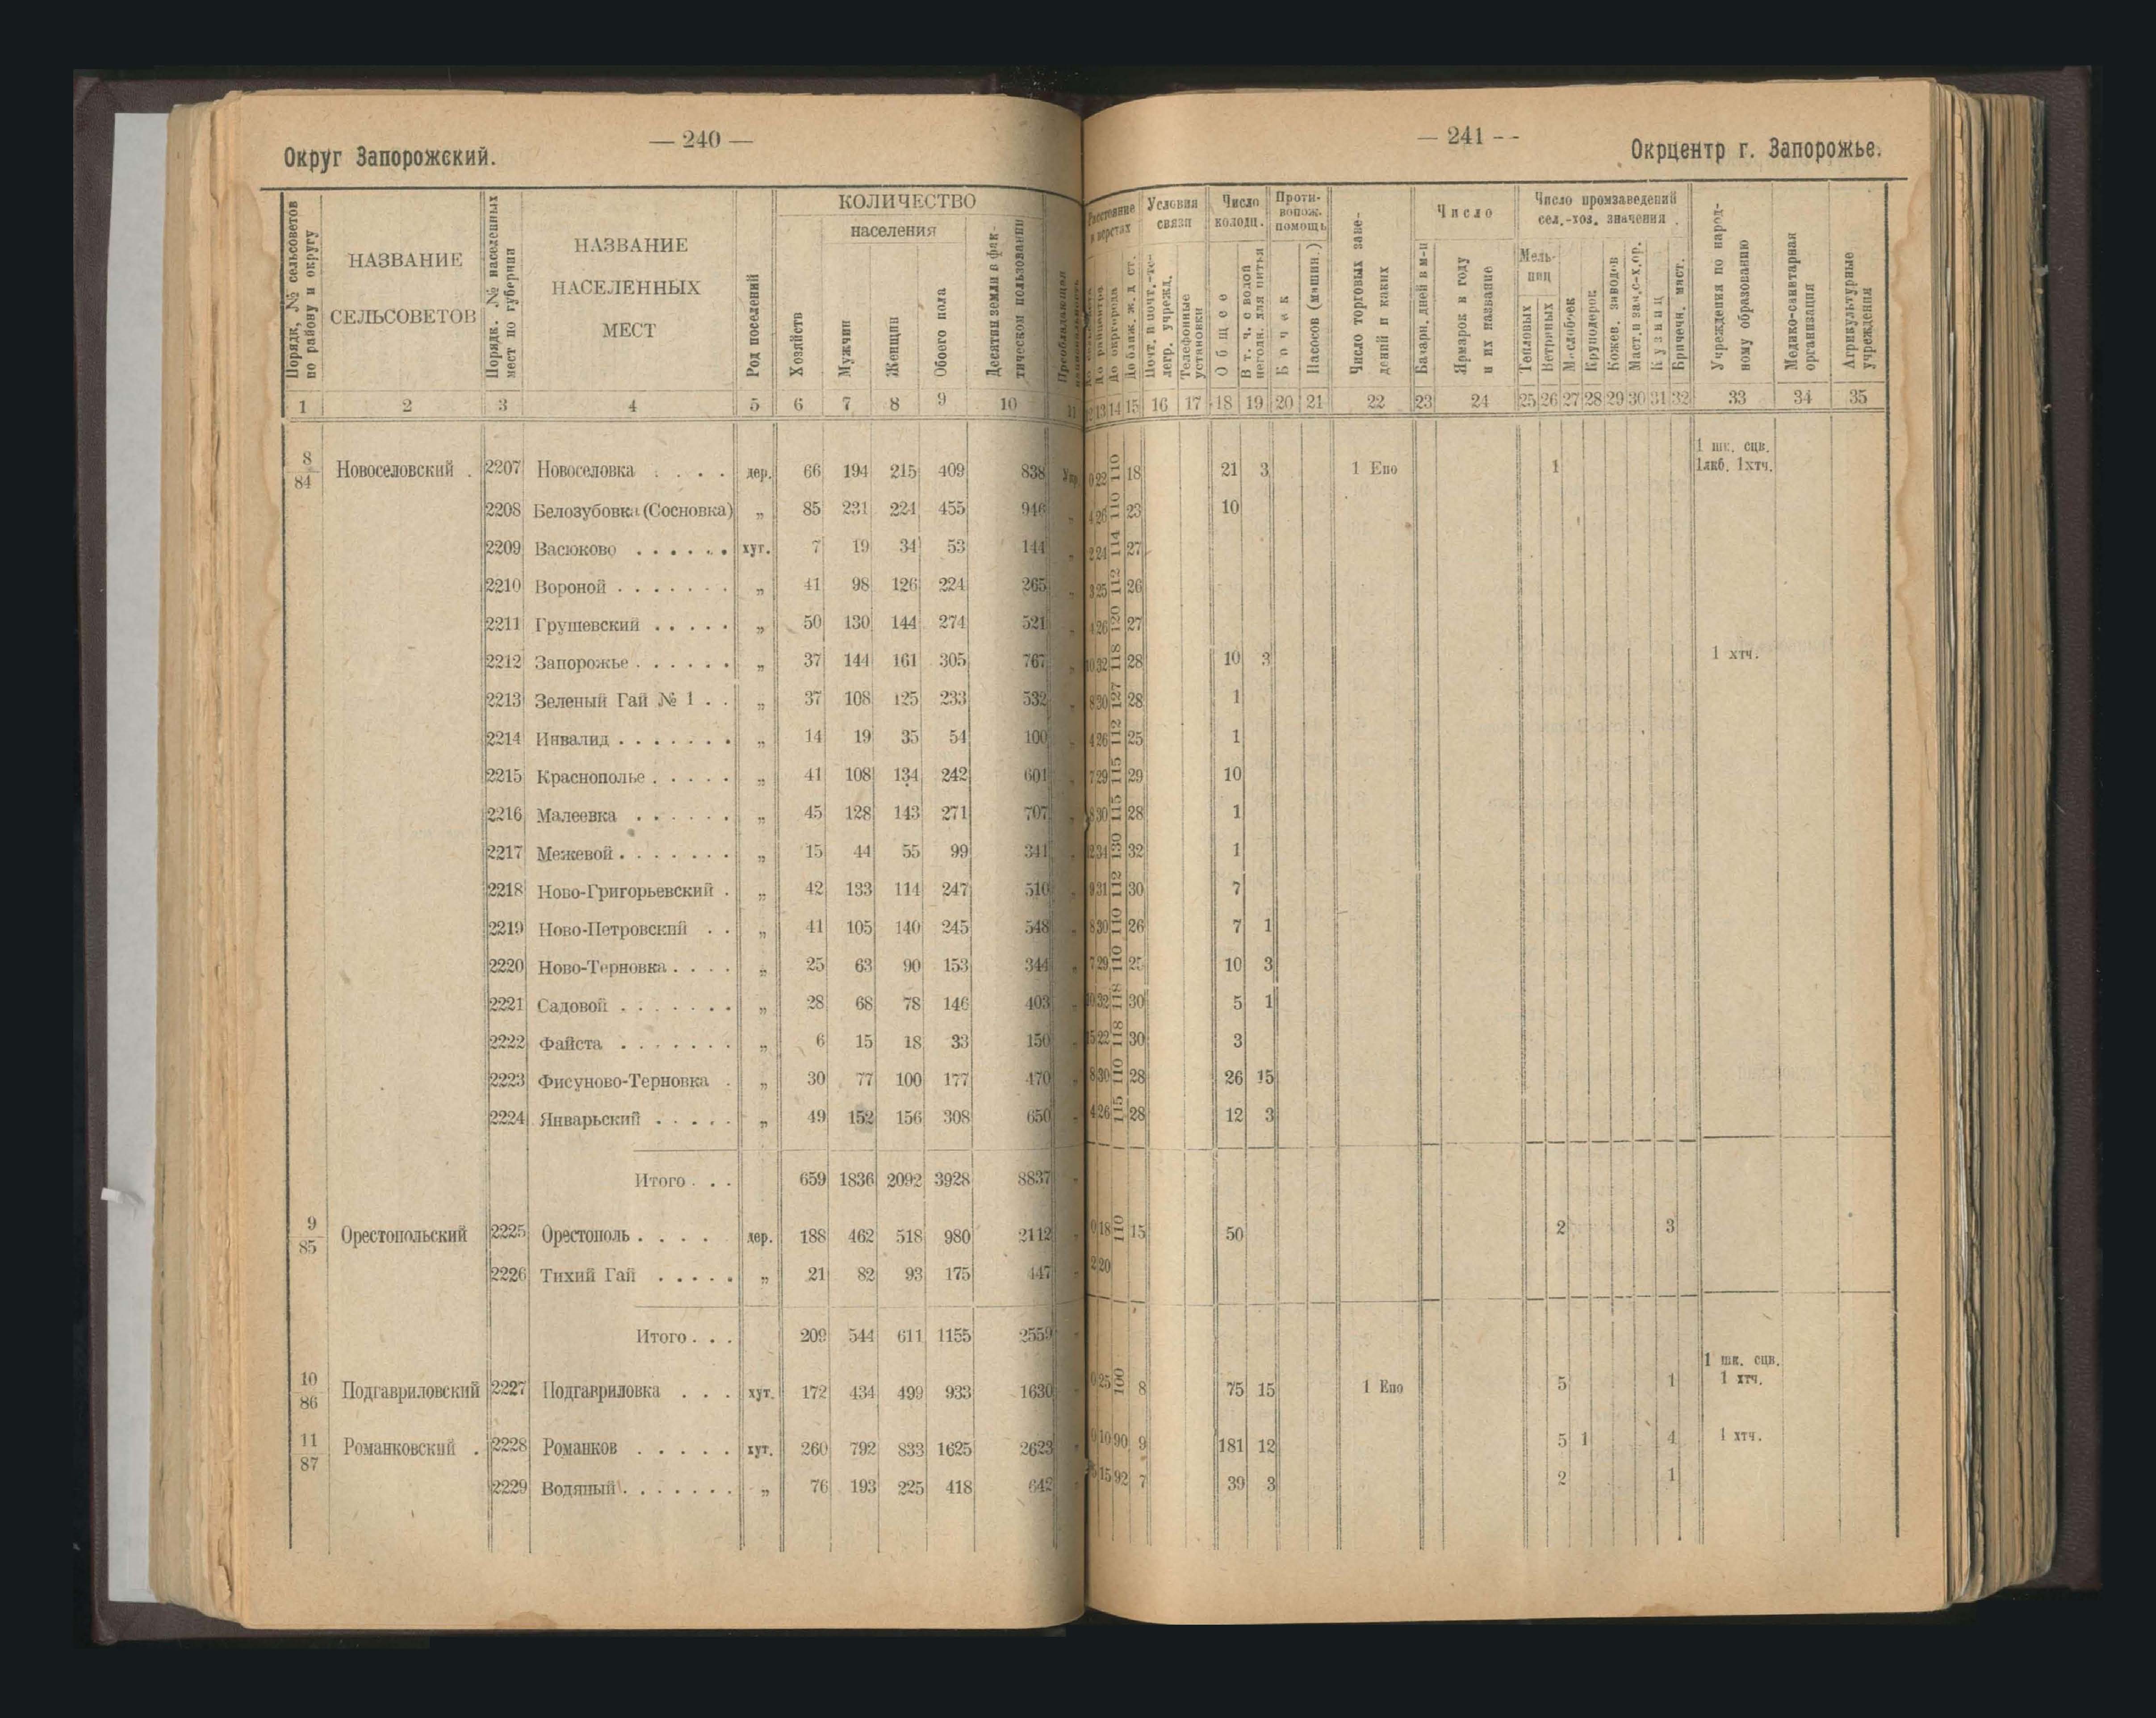 — 240 —
Округ Запорожский.
Порядк. № сельсоветов по району и округу
НАЗВАНИЕ СЕЛЬСОВЕТОВ
Порядк. № населенных мест по губернии
НАЗВАНИЕ НАСЕЛЕННЫХ МЕСТ
Род поселений
КОЛИЧЕСТВО
населения
Хозяйств
Мужчин
Женщин
Обоего пола
Десятин земли в фактическом пользовании
Преобладающая национальность
1 2 3 4 5 6 7 8 9 10 11
8/84 Новоселовский . 2207 Новоселовка . . . . дер. 66 194 215 409 838 Укр.
2208 Белозубовка (Сосновка) „ 85 231 224 455 946 „
2209 Васюково . . . . . . хут. 7 19 34 53 144 „
2210 Вороной . . . . . . . „ 41 98 126 224 265 „
2211 Грушевский . . . . . „ 50 130 144 274 521 „
2212 Запорожье . . . . . . „ 37 144 161 305 767 „
2213 Зеленый Гай № 1 . . „ 37 108 125 233 532 „
2214 Инвалид . . . . . . . „ 14 19 35 54 100 „
2215 Краснополье . . . . . „ 41 108 134 242 601 „
2216 Малеевка . . . . . . „ 45 128 143 271 707 „
2217 Межевой . . . . . . . „ 15 44 55 99 341 „
2218 Ново-Григорьевский . „ 42 133 114 247 510 „
2219 Ново-Петровский . . „ 41 105 140 245 548 „
2220 Ново-Терновка . . . . „ 25 63 90 153 344 „
2221 Садовой . . . . . . . „ 28 68 78 146 403 „
2222 Файста . . . . . . . „ 6 15 18 33 150 „
2223 Фисуново-Терновка . „ 30 77 100 177 470 „
2224 Январьский . . . . . „ 49 152 156 308 650 „
Итого . . . 659 1836 2092 3928 8837 „
9/85 Орестопольский 2225 Орестополь . . . . дер. 188 462 518 980 2112 „
2226 Тихий Гай . . . . . „ 21 82 93 175 447 „
Итого . . . 209 544 611 1155 2559 „
10/86 Подгавриловский 2227 Подгавриловка . . . хут. 172 434 499 933 1630 „
11/87 Романковский . 2228 Романков . . . . . хут. 260 792 833 1625 2623 „
2229 Водяный . . . . . . . „ 76 193 225 418 642 „
— 241 --
Окрцентр г. Запорожье.
Расстояние в верстах
До райцентра
До окргорода
До ближ. ж. д. ст.
Условия связи
Почт. и почт.-телегр. учрежд.
Телефонные установки
Число колодц.
Общее
В т. ч. с водой негодн. для питья
Противопож. помощь
Бочек
Насосов (машин.)
Число торговых заведений и каких
Число
Базарн. дней в м-ц
Ярмарок в году и их название
Число промзаведений сел.-хоз. значения
Мельниц
Тепловых
Ветряных
Маслобоек
Крупорок
Кожев. заводов
Маст. и зав. с-х. ор.
Кузниц
Кирпичн. маст.
Учреждения по народному образованию
Медико-санитарная организация
Агрикультурные учреждения
12 13 14 15 16 17 18 19 20 21 22 23 24 25 26 27 28 29 30 31 32 33 34 35
0 22 110 18 21 3 1 Епо 1 1 шк. сцв. 1лкб. 1хтч.
4 26 110 23 10
2 24 114 27
3 25 112 26
4 26 120 27
10 32 118 28 10 3 1 хтч.
8 30 127 28 1
4 26 112 25 1
7 29 115 29 10
8 30 115 28 1
12 34 130 32 1
9 31 112 30 7
8 30 110 26 7 1
7 29 110 25 10 3
10 32 118 30 5 1
15 22 118 30 3
8 30 110 28 26 15
4 26 115 28 12 3
0 18 110 15 50 2 3
2 20
0 25 100 8 75 15 1 Епо 5 1 1 шк. сцв. 1 хтч.
0 10 90 9 181 12 5 1 4 1 хтч.
15 92 7 39 3 2 1